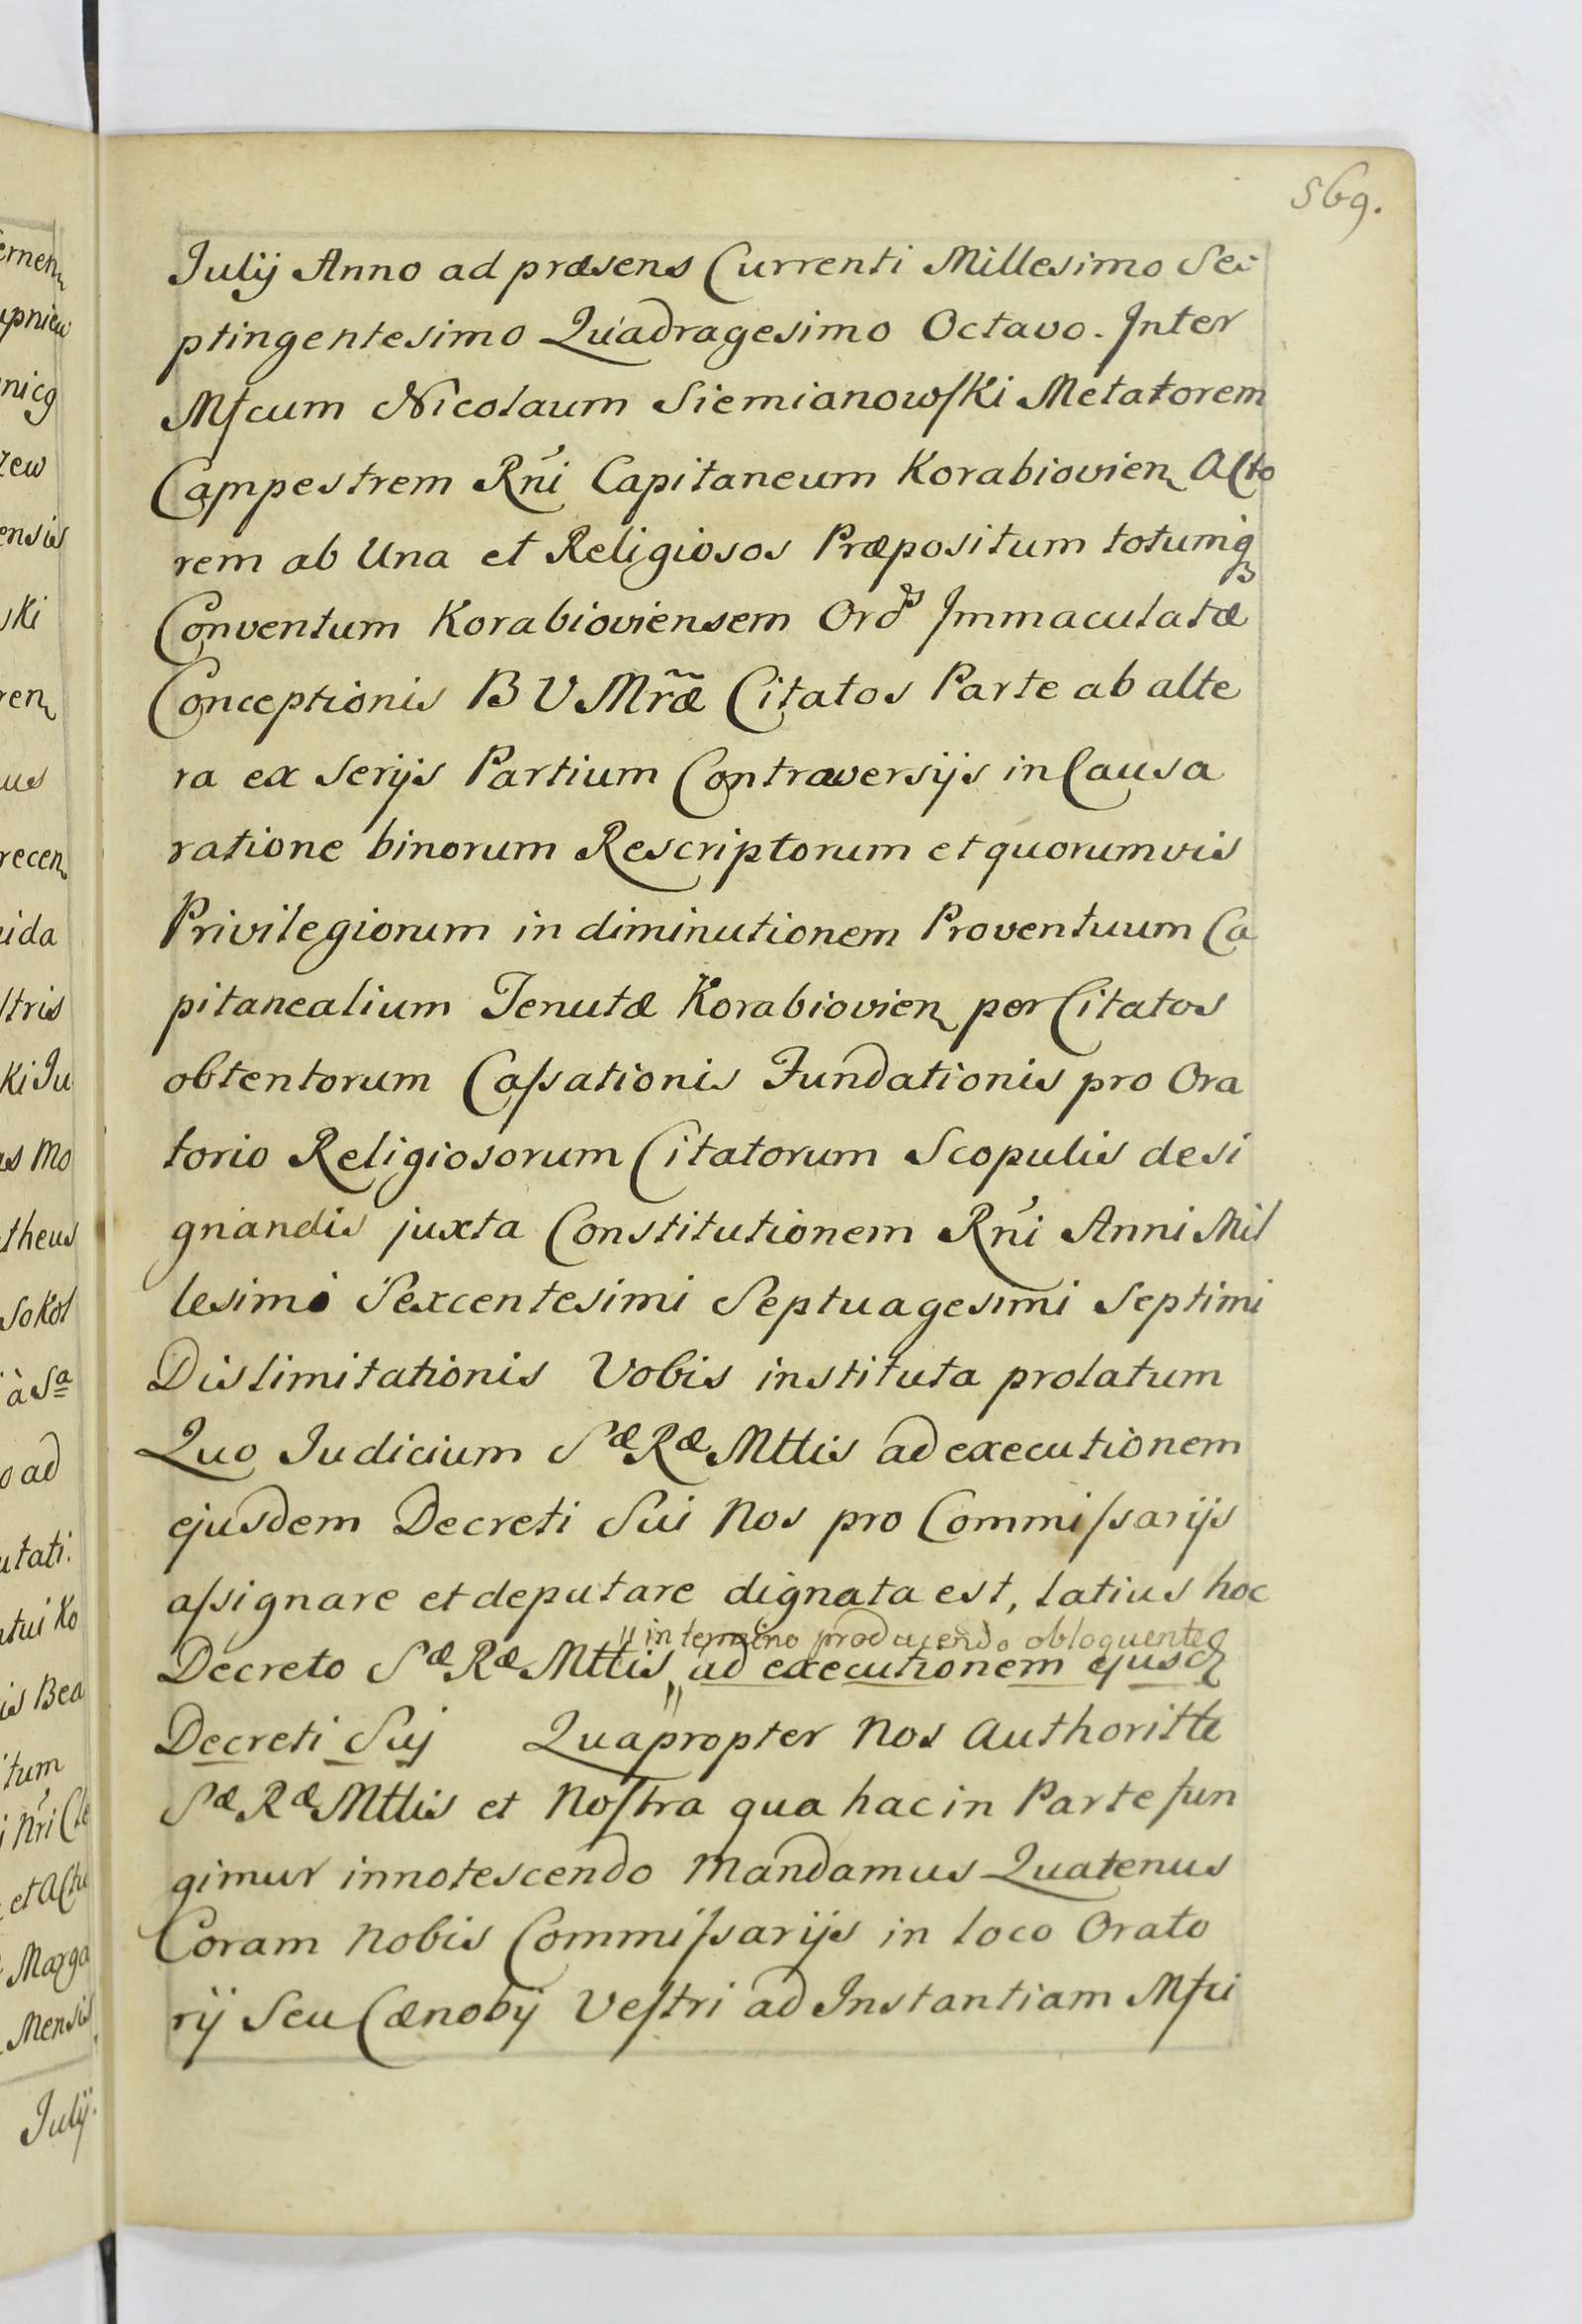 569.
Julij Anno ad præsens Currenti Millesimo Se
ptingentesimo Quadragesimo Octavo. Inter
Mfcum Nicolaum Siemianowski Metatorem
Campestrem Rni Capitaneum Korabiovien Acto
rem ab Una et Religiosos Præpositum totumq
Conventum Korabioviensem Ords Immaculatæ
Conceptionis B V Mræ Citatos Parte ab alte
ra ex Serijs Partium Controversijs in Causa
ratione binorum Rescriptorum et quorumvis
Privilegiorum in diminutionem Proventuum Ca
pitanealium Tenutæ Korabiovien per Citatos
obtentorum Cassationis Fundationis pro Ora
torio Religiosorum Citatorum Scopulis desi
gnandis juxta Constitutionem Rni Anni Mil
lesimi Sexcentesimi Septuagesimi Septimi
Dislimitationis Vobis instituta prolatum
Quo Judicium Sæ Ræ Mttis ad executionem
ejusdem Decreti Sui Nos pro Commissarijs
assignare et deputare dignata est, latius hoc
" in termino producendo obloquente
Decreto Sæ Ræ Mttis " ad executionem ejusd
Decreti Suj Quapropter Nos Authoritte
Sæ Ræ Mttis et Nostra qua hac in Parte fun
gimur innotescendo Mandamus Quatenus
Coram Nobis Commissarijs in loco Orato
rij Seu Cænobij Vestri ad Instantiam Mfci
ki Ju
theus
Sokol
à Sa
o ad
Marga
Mensis
Julij.